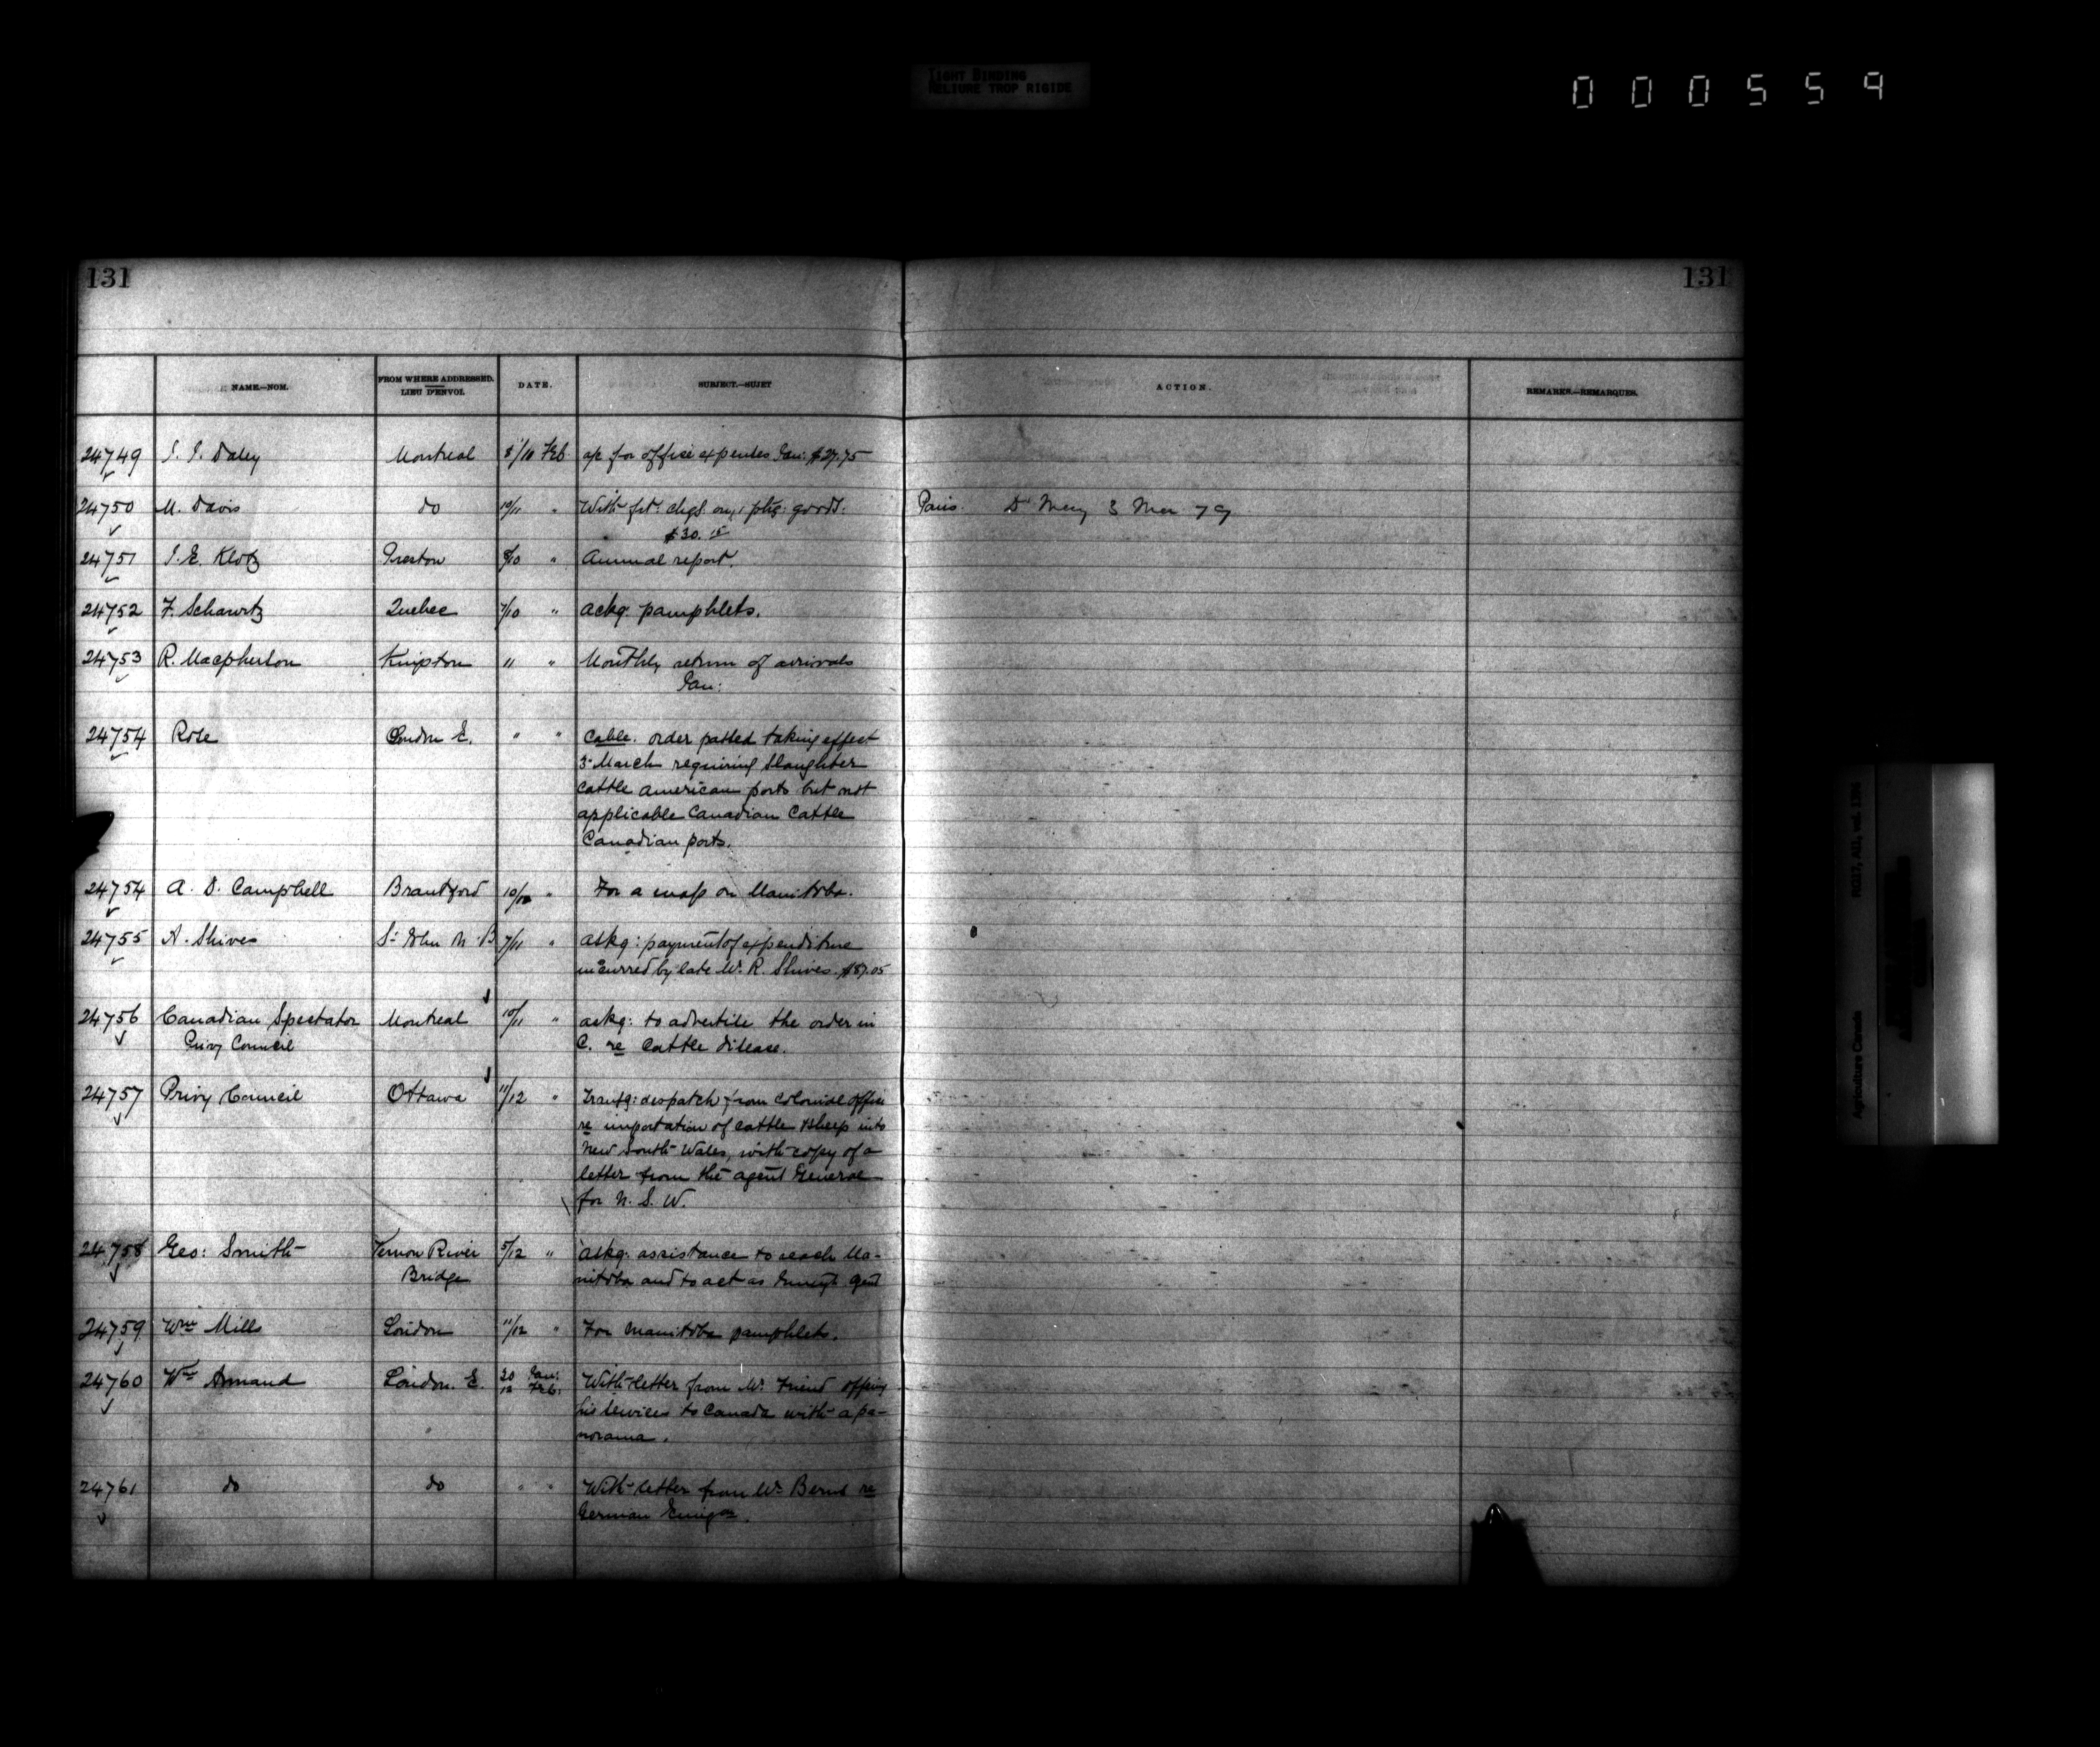 TIGHT BINDING
RELIURE TROP RIGIDE
000559
131 131
NAME.—NOM. FROM WHERE ADDRESSED. LIEU D'ENVOI. DATE. SUBJECT.—SUJET ACTION. REMARKS.—REMARQUES.
24749 J. J. Daley Montreal 8/10 Feb. a/c for office expenses Jan: $27.75
24750 M. Davis do 10/11 " With frt. chgs. on 1 pkg: goods. Paris. 3 Mar 79
$30.15
24751 J. E. Klotz Preston 8/10 " Annual report.
24752 F. Schawrtz Quebec 7/10 " ackg. pamphlets.
24753 R. Macpherson Kingston " " Monthly return of arrivals
Jan:
24754 Rose London E. " " Cable. order passed taking effect
3 March requiring slaughter
cattle american ports but not
applicable Canadian Cattle
Canadian ports.
24754 A. D. Campbell Brantford 10/12 " For a map on Manitoba.
24755 A. Shives St John N. B 7/11 " askg: payment of expenditure
incurred by late Mr. R. Shives. $87.05
24756 Canadian Spectator Montreal 10/11 " askg: to advertise the order in
Privy Council C. re Cattle disease.
24757 Privy Council Ottawa 11/12 " Transg: despatch from Colonial office
re importation of cattle & sheep into
New South Wales, with copy of a
letter from the agent General
for N. S. W.
24758 Geo: Smith Vernon River 5/12 " askg: assistance to reach Ma-
Bridge nitoba and to act as Immigt. agent
24759 Wm Mills London 11/12 " For Manitoba pamphlets.
24760 Wm Annand London. E. 30 Jan: With letter from Mr. Friend offering
12 Feb. his services to Canada with a pa-
norama.
24761 do do " " With letter from Mr. Bernd re
German Emigon.
RG17, AII, vol. 1394
Agriculture Canada